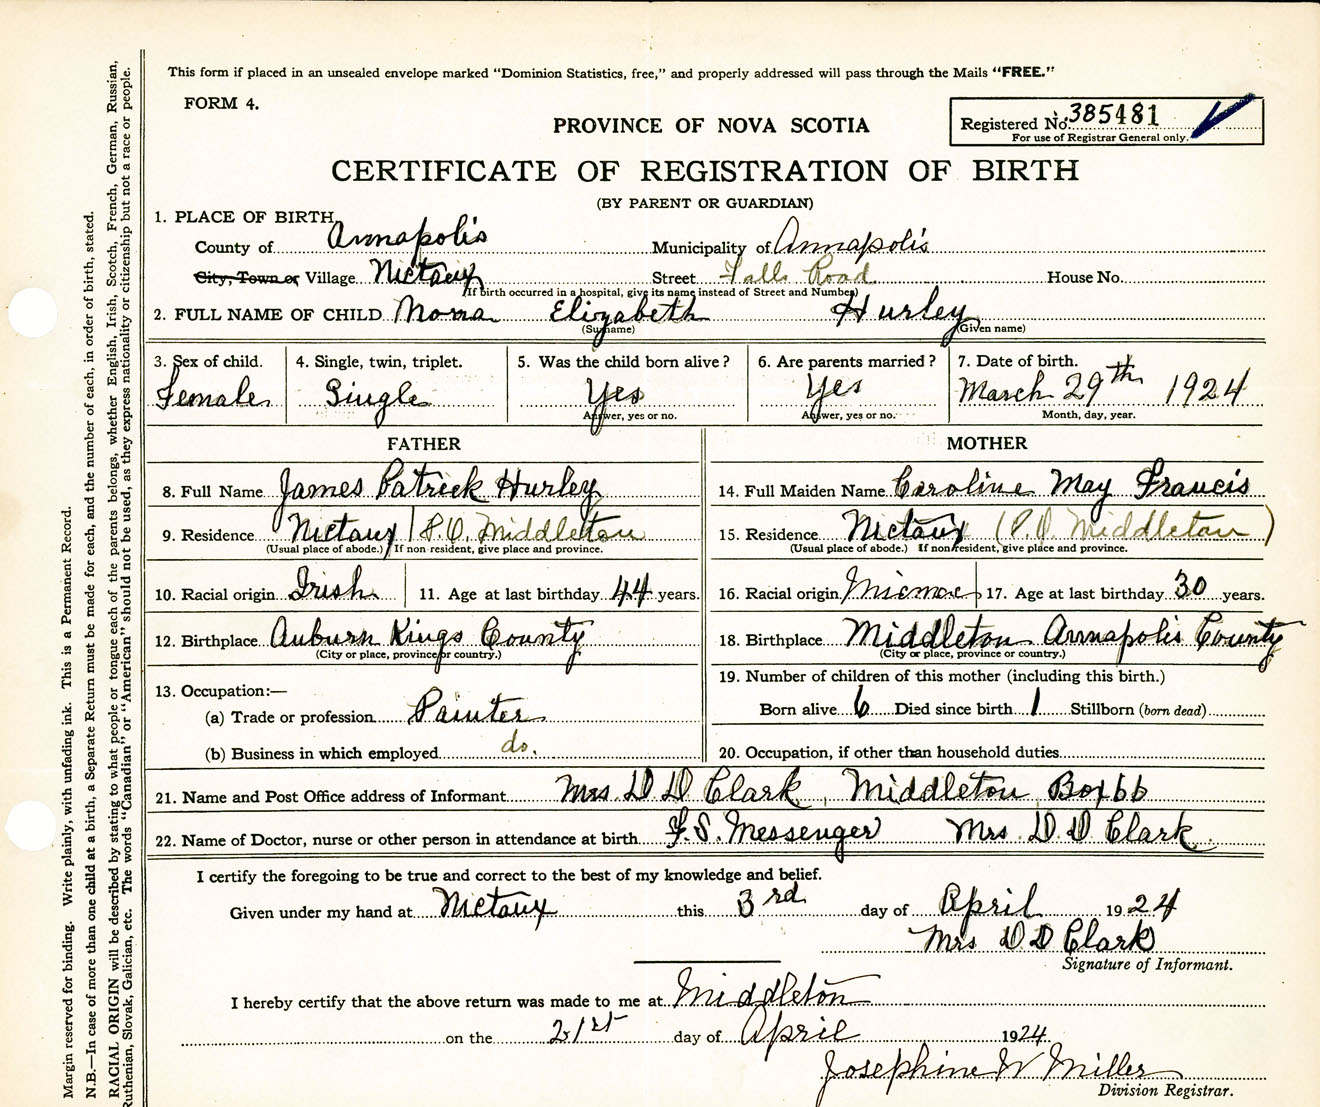 This form if placed in an unsealed envelope marked "Dominion Statistics, free," and properly addressed will pass through the Mails "FREE."
FORM 4.
Registered No. 385481
For use of Registrar General only.
PROVINCE OF NOVA SCOTIA
CERTIFICATE OF REGISTRATION OF BIRTH
(BY PARENT OR GUARDIAN)
1. PLACE OF BIRTH
County of Annapolis Municipality of Annapolis
City, Town or Village Nictaux Street Falls Road House No.
(If birth occurred in a hospital, give its name instead of Street and Number)
2. FULL NAME OF CHILD Mona Elizabeth Hurley
(Surname) (Given name)
3. Sex of child. 4. Single, twin, triplet. 5. Was the child born alive? 6. Are parents married? 7. Date of birth.
Female Single Yes Yes March 29th 1924
Answer, yes or no. Answer, yes or no. Month, day, year.
FATHER MOTHER
8. Full Name James Patrick Hurley 14. Full Maiden Name Caroline May Francis
9. Residence Nictaux P.O. Middleton 15. Residence Nictaux (P.O. Middleton)
(Usual place of abode.) If non-resident, give place and province. (Usual place of abode.) If non-resident, give place and province.
10. Racial origin Irish 11. Age at last birthday 44 years. 16. Racial origin Micmac 17. Age at last birthday 30 years.
12. Birthplace Auburn Kings County 18. Birthplace Middleton Annapolis County
(City or place, province or country.) (City or place, province or country.)
13. Occupation:— 19. Number of children of this mother (including this birth.)
(a) Trade or profession Painter Born alive 6 Died since birth 1 Stillborn (born dead)
(b) Business in which employed do. 20. Occupation, if other than household duties
21. Name and Post Office address of Informant Mrs D D Clark, Middleton Box 66
22. Name of Doctor, nurse or other person in attendance at birth F.S. Messenger Mrs. D. D. Clark
I certify the foregoing to be true and correct to the best of my knowledge and belief.
Given under my hand at Nictaux this 3rd day of April 1924
Mrs D D Clark
Signature of Informant.
I hereby certify that the above return was made to me at Middleton
on the 21st day of April 1924
Josephine W Miller
Division Registrar.
Margin reserved for binding. Write plainly, with unfading ink. This is a Permanent Record.
N.B.—In case of more than one child at a birth, a Separate Return must be made for each, and the number of each, in order of birth, stated.
RACIAL ORIGIN will be described by stating to what people or tongue each of the parents belongs, whether English, Irish, Scotch, French, German, Russian,
Ruthenian, Slovak, Galician, etc. The words "Canadian" or "American" should not be used, as they express nationality or citizenship but not a race or people.